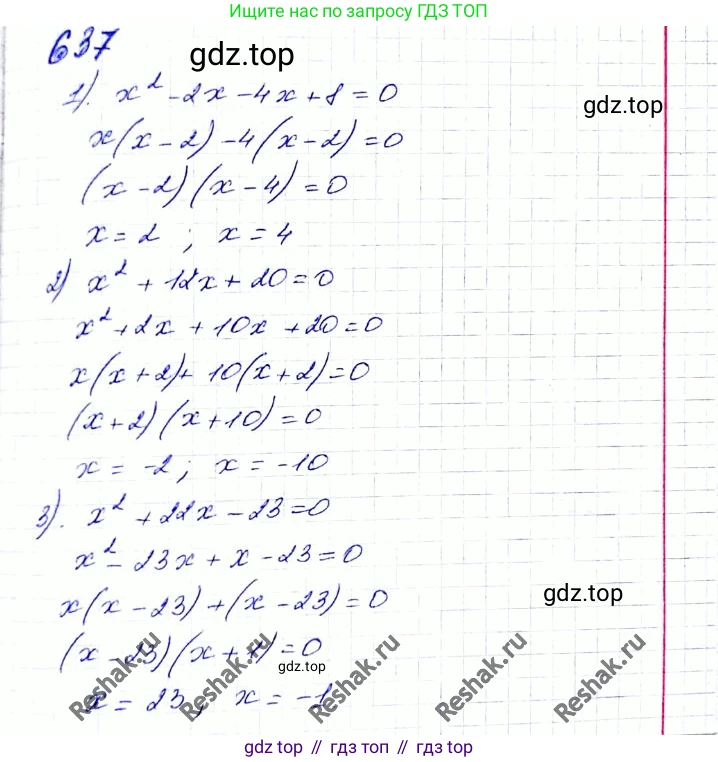 Ищите нас по запросу ГДЗ ТОП
637
gdz.top
1). x² - 2x - 4x + 8 = 0
gdz.top
x(x - 2) - 4(x - 2) = 0
(x - 2)(x - 4) = 0
x = 2 ; x = 4
2) x² + 12x + 20 = 0
x² + 2x + 10x + 20 = 0
x(x + 2) + 10(x + 2) = 0
(x + 2)(x + 10) = 0
x = -2 ; x = -10
3). x² + 22x - 23 = 0
x² - 23x + x - 23 = 0
x(x - 23) + (x - 23) = 0
gdz.top
(x - 23)(x + 1) = 0
gdz.top
x = 23 ; x = -1
Reshak.ru
Reshak.ru
Reshak.ru
Reshak.ru
Reshak.ru
gdz.top // гдз топ // gdz.top